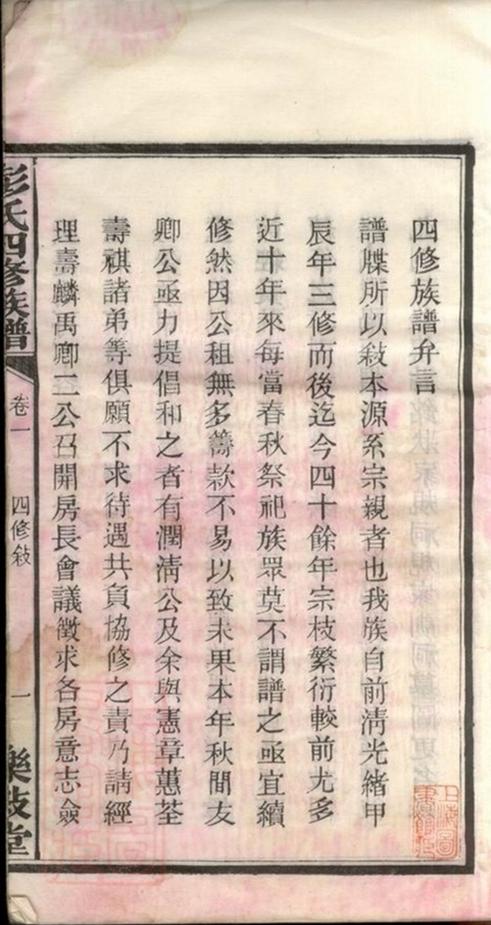 四修族譜弁言
譜牒所以敍本源系宗親者也我族自前淸光緒甲
辰年三修而後迄今四十餘年宗枝繁衍較前尤多
近十年來每當春秋祭祀族眾莫不謂譜之亟宜續
修然因公租無多籌款不易以致未果本年秋間友
卿公亟力提倡和之者有潤淸公及余與憲章蕙荃
壽祺諸弟等俱願不求待遇共負協修之責乃請經
理壽麟禹卿二公召開房長會議徵求各房意志僉
彭氏四修族譜
卷一
四修敍
一
樂敍堂
上海圖書館藏